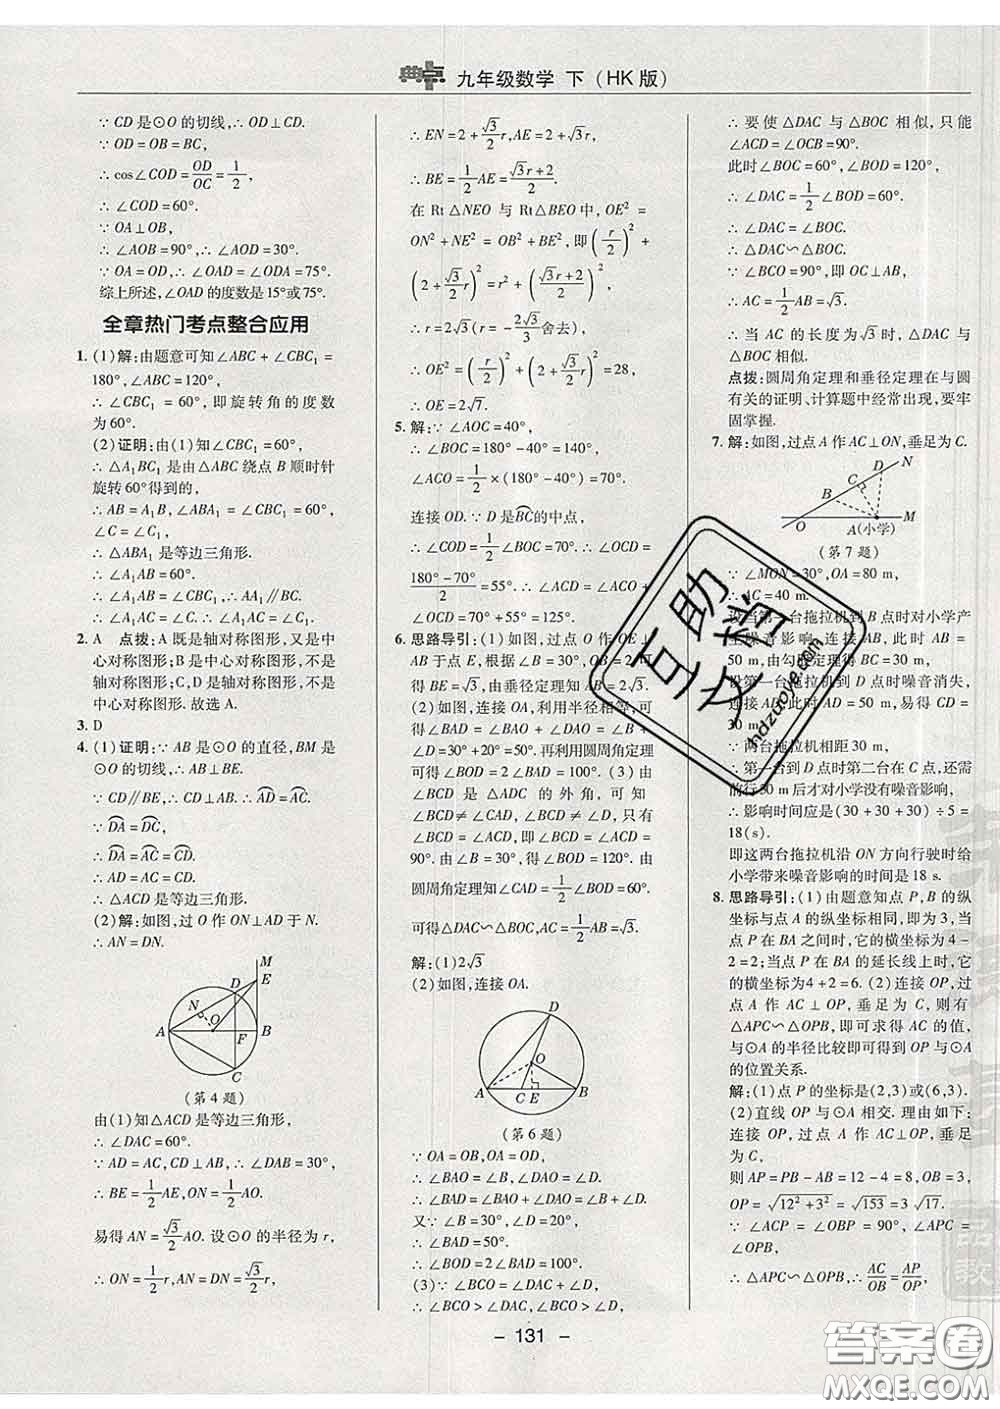 典中点 九年级数学 下(HK版)
∵CD是⊙O的切线,∴OD⊥CD.
∵OD=OB=BC,
∴cos∠COD=OD/OC=1/2,
∴∠COD=60°.
∵OA⊥OB,
∴∠AOB=90°,∴∠AOD=30°.
∵OA=OD,∴∠OAD=∠ODA=75°.
综上所述,∠OAD的度数是15°或75°.
全章热门考点整合应用
1. (1)解:由题意可知∠ABC+∠CBC₁=
180°,∠ABC=120°,
∴∠CBC₁=60°,即旋转角的度数
为60°.
(2)证明:由(1)知∠CBC₁=60°,
∴△A₁BC₁是由△ABC绕点B顺时针
旋转60°得到的,
∴AB=A₁B,∠ABA₁=∠CBC₁=60°,
∠C=∠C₁.
∴△ABA₁是等边三角形.
∴∠A₁AB=60°=∠CBC₁.
∴A₁A∥BC.
∴∠A₁AC=∠C.∴∠A₁AC=∠C₁.
2. A 点拨:A既是轴对称图形,又是中
心对称图形;B是中心对称图形,不是
轴对称图形;C,D是轴对称图形,不是
中心对称图形.故选A.
3. D
4. (1)证明:∵AB是⊙O的直径,BM是
⊙O的切线,∴AB⊥BE.
∵CD∥BE,∴CD⊥AB.∴AD=AC.
∵DA=DC,
∴DA=AC=CD.
∴△ACD是等边三角形.
(2)解:如图,过O作ON⊥AD于N.
∴AN=DN.
M
D
E
N
O
A
F
B
C
(第4题)
由(1)知△ACD是等边三角形,
∴∠DAC=60°.
∵AD=AC,CD⊥AB,∴∠DAB=30°,
∴BE=1/2AE,ON=1/2AO.
易得AN=√3/2AO.设⊙O的半径为r,
∴ON=1/2r,AN=DN=√3/2r,
∴EN=2+√3/2r,AE=2+√3r,
∴BE=1/2AE=(√3r+2)/2.
在Rt△NEO与Rt△BEO中,OE²=
ON²+NE²=OB²+BE²,即(r/2)²+
(2+√3/2r)²=r²+((√3r+2)/2)²,
∴r=2√3(r=-2√3/3舍去),
∴OE²=(r/2)²+(2+√3/2r)²=28,
∴OE=2√7.
5. 解:∵∠AOC=40°,
∴∠BOC=180°-40°=140°,
∠ACO=1/2×(180°-40°)=70°.
连接OD.∵D是BC的中点,
∴∠COD=1/2∠BOC=70°.∴∠OCD=
(180°-70°)/2=55°.∴∠ACD=∠ACO+
∠OCD=70°+55°=125°.
6. 思路导引:(1)如图,过点O作OE⊥
AB于点E,根据∠B=30°,OB=2可
得OE=1,BE=√3,由垂径定理知AB=2√3.
(2)如图,连接OA,利用半径相等,可
得∠BAD=∠BAO+∠DAO=∠B+
∠D=30°+20°=50°.再利用圆周角定理
可得∠BOD=2∠BAD=100°.(3)由
∠BCD是△ADC的外角,可知
∠BCD≠∠CAD,∠BCD≠∠D,只有
∠BCD=∠ACD,即∠BCD=∠ACD=
90°.由∠B=30°,得∠BOD=120°.由
圆周角定理知∠CAD=60°=∠BOC,
可得△DAC∽△BOC,AC=1/2AB=√3.
解:(1)2√3
(2)如图,连接OA.
D
O
A
C E
B
(第6题)
∵OA=OB,OA=OD,
∴∠BAO=∠B,∠DAO=∠D.
∴∠BAD=∠BAO+∠DAO=∠B+∠D.
又∵∠B=30°,∠D=20°,
∴∠BAD=50°.
∴∠BOD=2∠BAD=100°.
(3)∵∠BCO=∠DAC+∠D,
∴∠BCO>∠DAC,∠BCO>∠D.
∴要使△DAC与△BOC相似,只能
∠ACD=∠OCB=90°.
此时∠BOC=60°,∠BOD=120°,
∴∠DAC=1/2∠BOD=60°.
∴∠DAC=∠BOC.
∴△DAC∽△BOC.
∵∠BCO=90°,即OC⊥AB,
∴AC=1/2AB=√3.
∴当AC的长度为√3时,△DAC与
△BOC相似.
点拨:圆周角定理和垂径定理在与圆
有关的证明、计算题中经常出现,要牢
固掌握.
7. 解:如图,过点A作AC⊥ON,垂足为C.
N
D
C
B
O
A(小学)
M
(第7题)
∵∠MON=30°,OA=80 m,
∴AC=40 m.
设当第一台拖拉机到B点时对小学产
生噪音影响,连接AB,此时AB=
50 m,由勾股定理得BC=30 m,
设第一台拖拉机到D点时噪音消失,
连接AD,此时AD=50 m,易得CD=
30 m.
∵两台拖拉机相距30 m,
∴第一台到D点时第二台在C点,还需
前行30 m后才对小学没有噪音影响,
∴影响时间应是(30+30+30)÷5=
18(s).
即这两台拖拉机沿ON方向行驶时给
小学带来噪音影响的时间是18 s.
8. 思路导引:(1)由题意知点P,B的纵
坐标与点A的纵坐标相同,即为3,当
点P在BA之间时,它的横坐标为4-
2=2;当点P在BA的延长线上时,它
的横坐标为4+2=6.(2)连接OP,过
点A作AC⊥OP,垂足为C,则有
△APC∽△OPB,即可求得AC的值,
与⊙A的半径比较即可得到OP与⊙A
的位置关系.
解:(1)点P的坐标是(2,3)或(6,3).
(2)直线OP与⊙A相交.理由如下:
连接OP,过点A作AC⊥OP,垂足
为C,
则AP=PB-AB=12-4=8,OB=3,
OP=√(12²+3²)=√153=3√17.
∵∠ACP=∠OBP=90°,∠APC=
∠OPB,
∴△APC∽△OPB,∴AC/OB=AP/OP,
- 131 -
互助文档
hdzuoye.com
答案圈
MXQE.COM